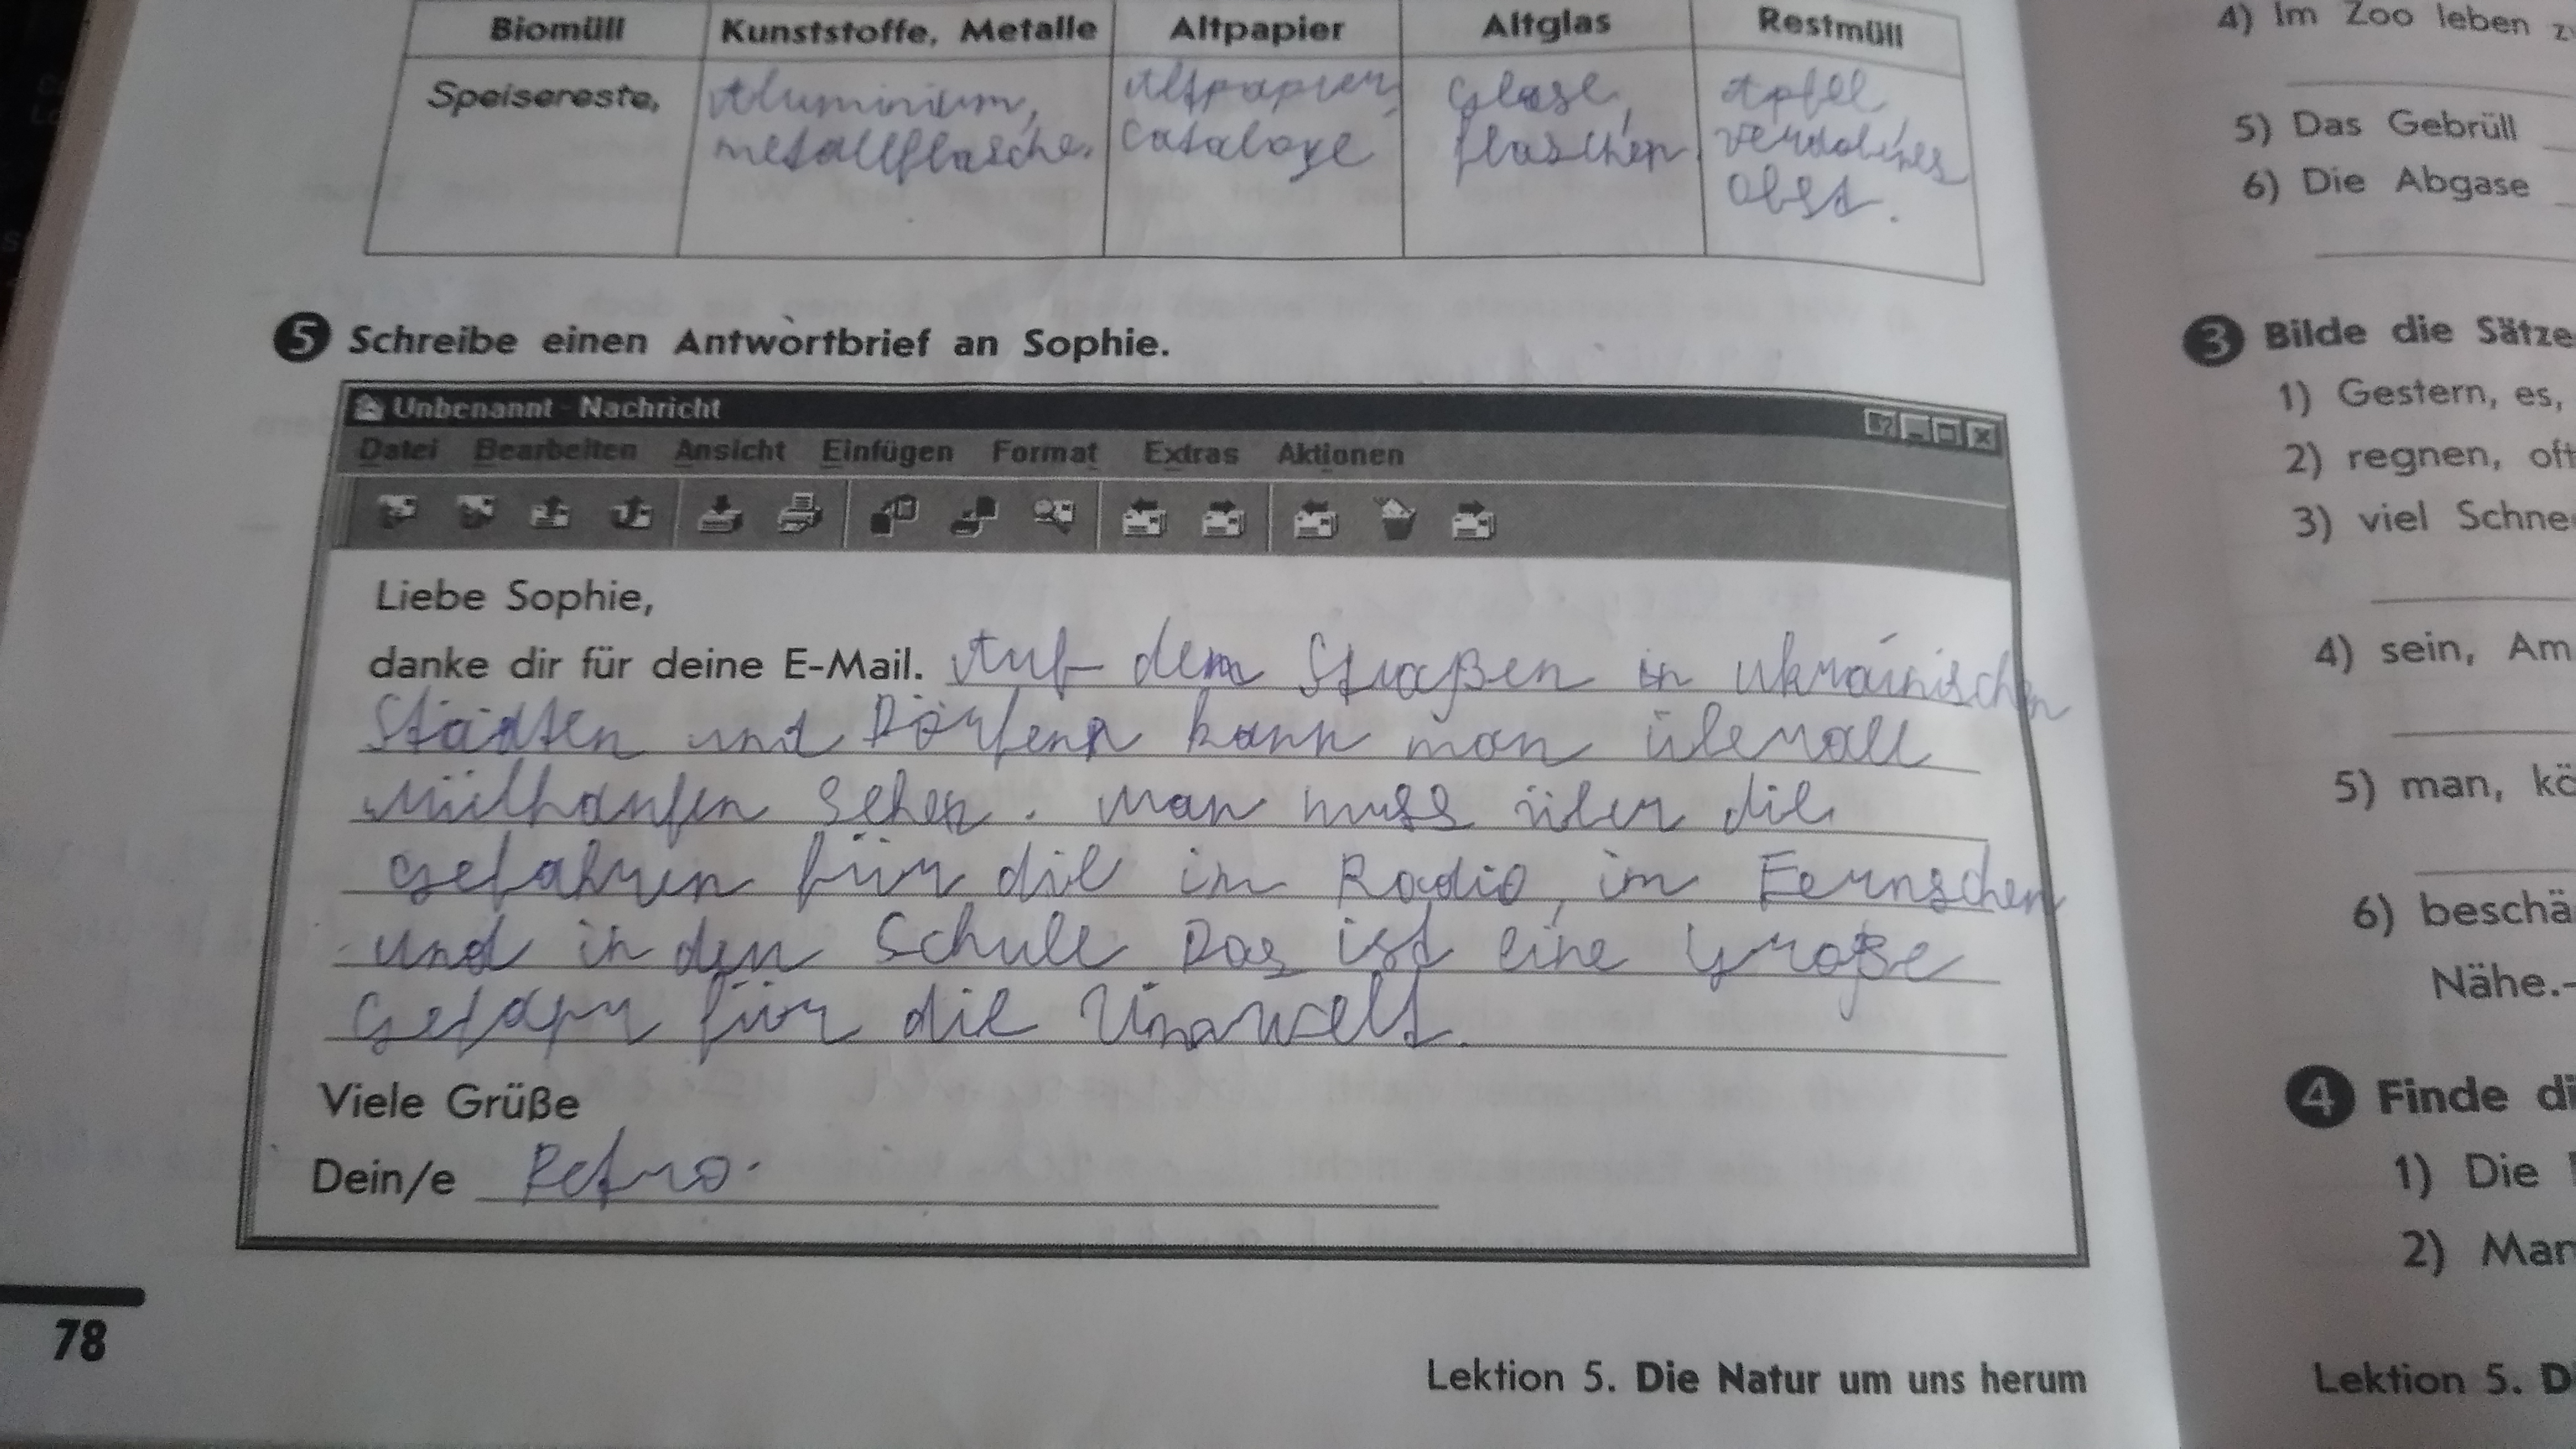 Biomüll Kunststoffe, Metalle Altpapier Altglas Restmüll
Speisereste, Aluminium, Altpapier, Glase, Apfel,
metallflasche. Cataloge flaschen. verdolines
Obst.
5 Schreibe einen Antwortbrief an Sophie.
Unbenannt - Nachricht
Datei Bearbeiten Ansicht Einfügen Format Extras Aktionen
Liebe Sophie,
danke dir für deine E-Mail. Auf dem Straßen in ukrainischen
Städten und Dörfenn kann man überall
Müllhaufen sehen. Man muss über die
Gefahren für die im Radio, im Fernsehen
und in der Schule Das ist eine große
Gefapr für die Umwelt.
Viele Grüße
Dein/e Petro.
78
Lektion 5. Die Natur um uns herum
4) Im Zoo leben
5) Das Gebrüll
6) Die Abgase
3 Bilde die Sätze
1) Gestern, es,
2) regnen, oft
3) viel Schne
4) sein, Am
5) man, kö
6) beschä
Nähe.
4 Finde di
1) Die
2) Man
Lektion 5. D